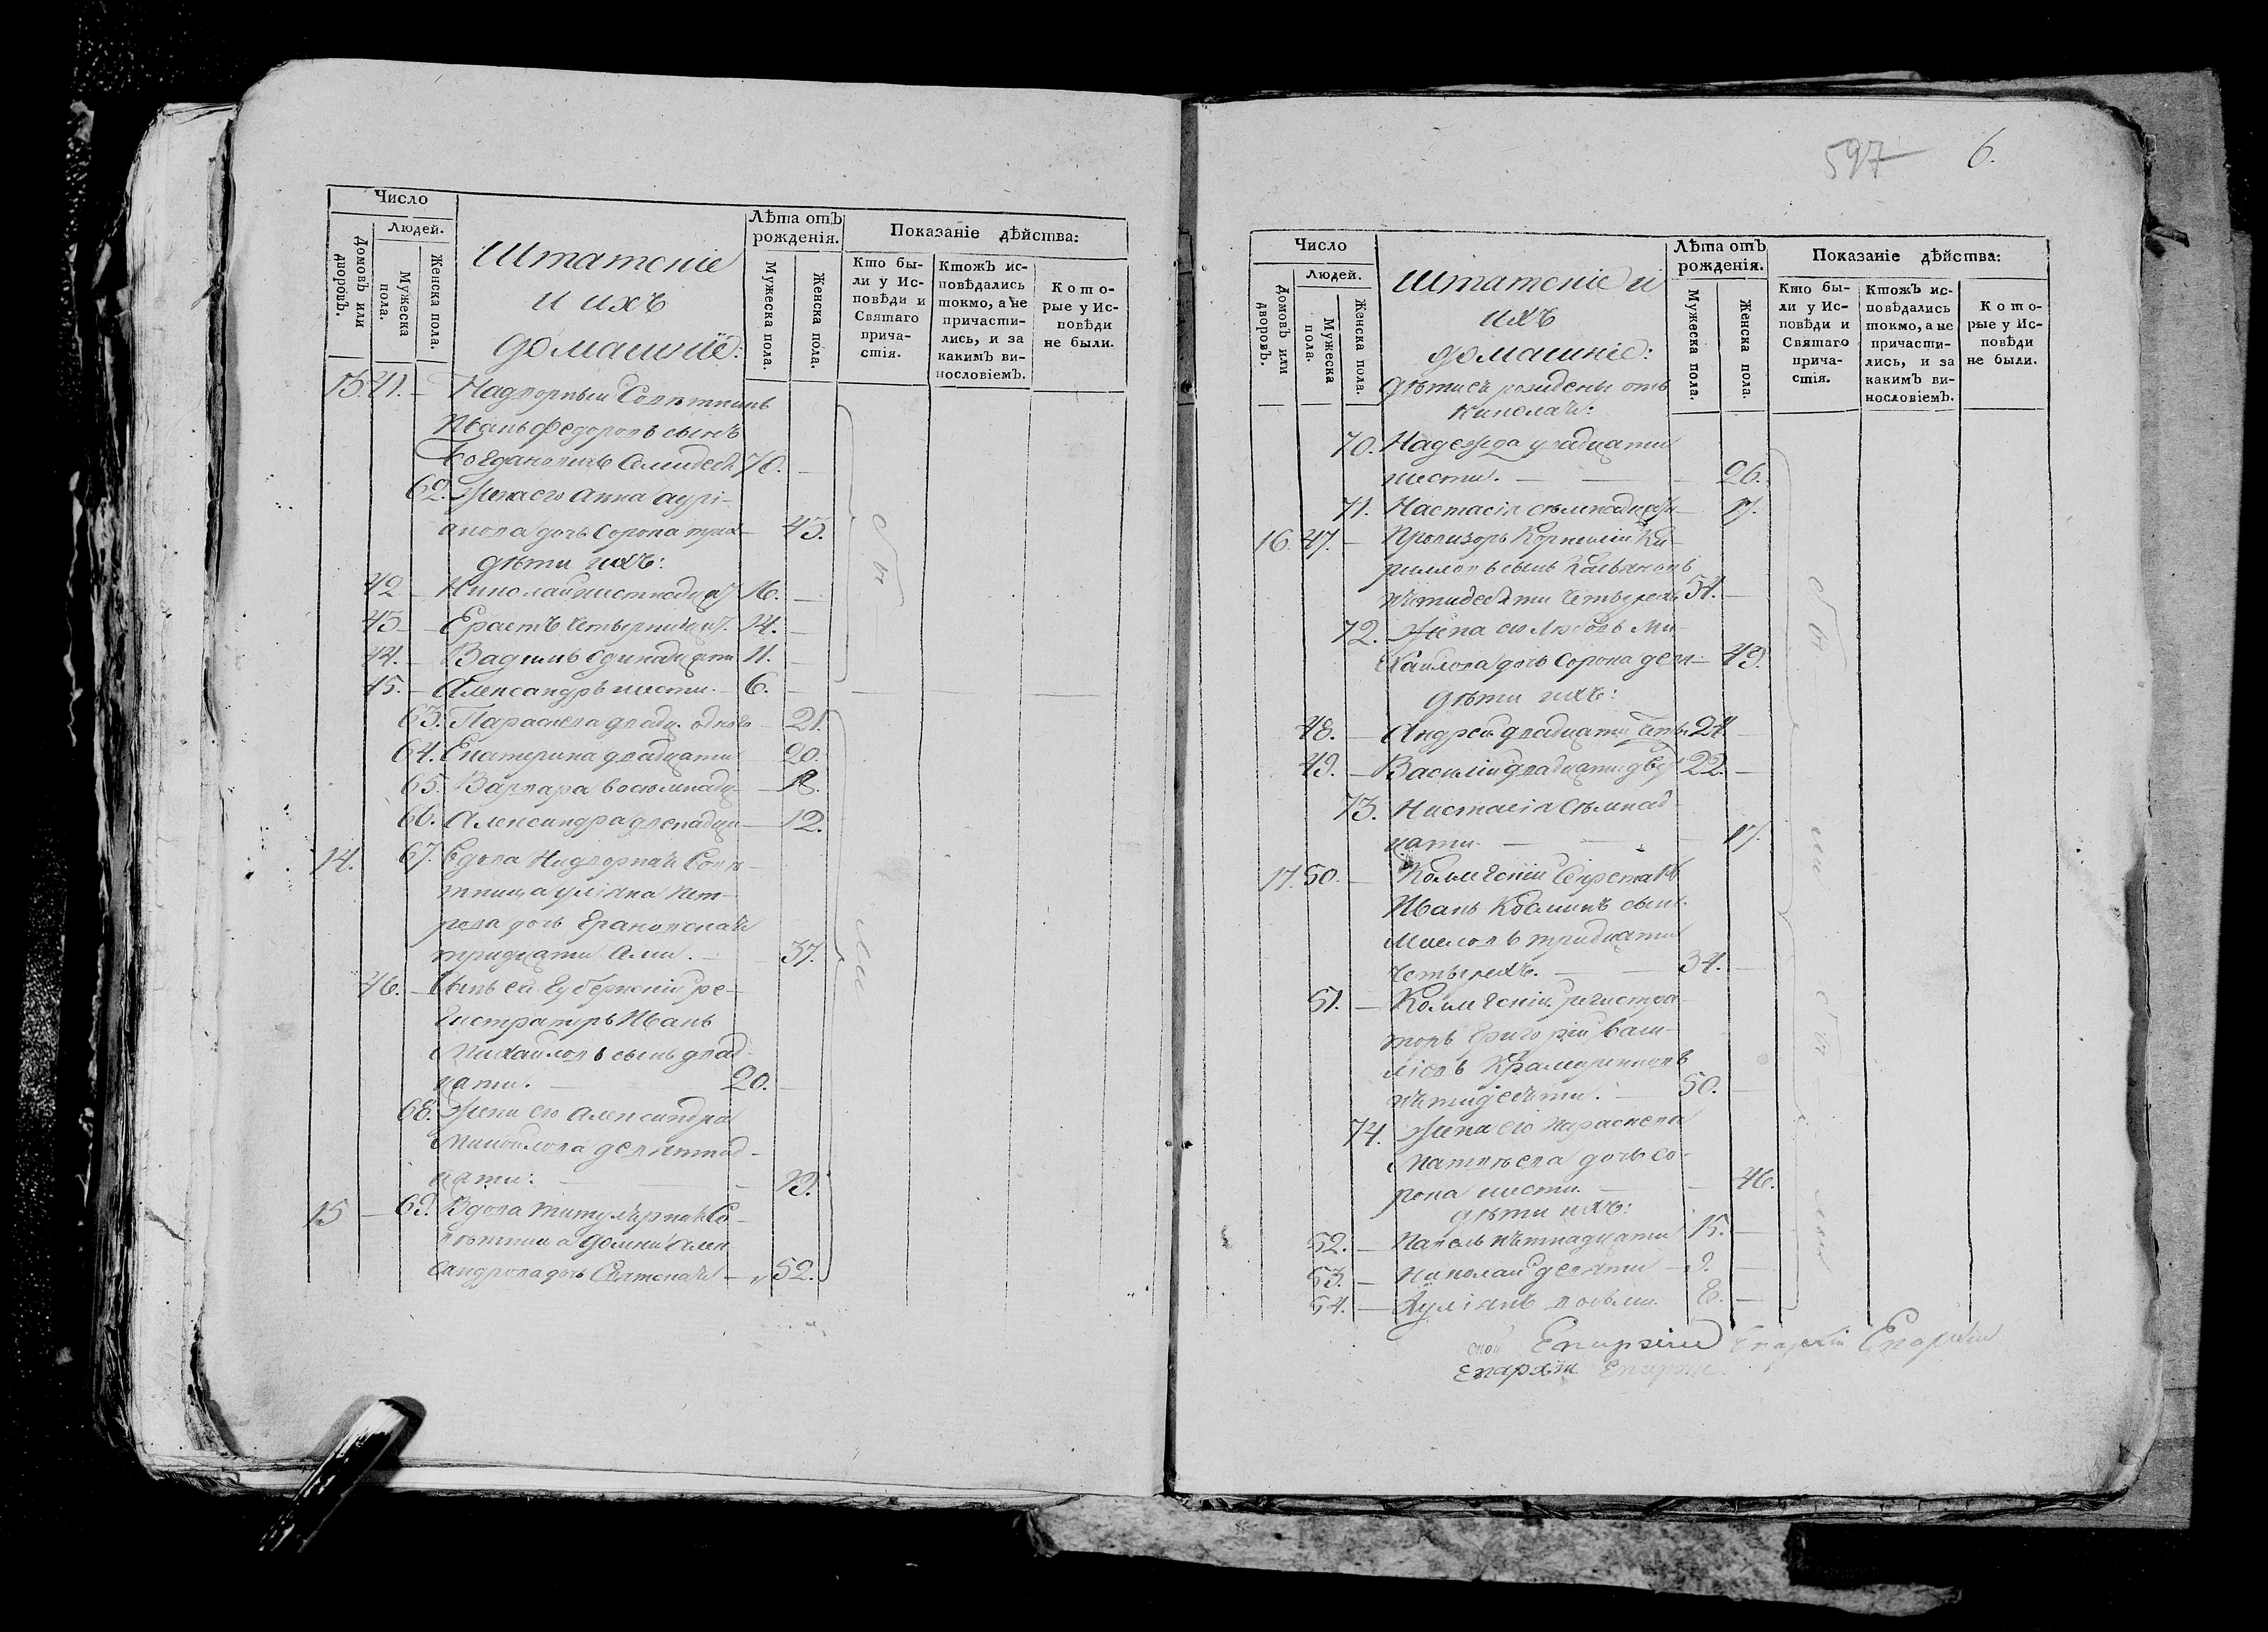 Число
Людей.
Домовъ или дворовъ.
Мужеска пола.
Женска пола.
Штатскіе
и ихъ
домашніе:
Лѣта отъ рожденія.
Мужеска пола.
Женска пола.
Показаніе дѣйства:
Кто были у Исповѣди и Святаго причастія.
Ктожъ исповѣдались токмо, а не причастились, и за какимъ винословіемъ.
Которые у Исповѣди не были.
41. — Надворный Совѣтникъ
Иванъ Федоровъ сынъ
70. —
62. Жена его Анна
дочь сорока трехъ — 43.
дѣти ихъ:
42 — Николай шестнадцат 16. —
43 — Ерастъ четырнадцат. 14. —
44. — Вадимъ одинадцати 11. —
45. — Александръ шести. — 6. —
63. Параскева двадц. одного — 21.
64. Екатерина двадцати 20.
65. Варвара восемнадц — 18.
66. Александра двенадца — 12.
14. 67. Вдова Надворная Совѣ-
тница Пет-
рова дочь
тридцати семи. — 37.
46. — Сынъ ея Губернскій ре-
гистраторъ Иванъ
Михайловъ сынъ двад-
цати. — 20. —
68. Жена его Александра
Михайлова девятнад-
цати: — 19.
15 — 69. Вдова титулярная Со-
вѣтница Домна Алек
сандрова дочь — 52.
597 6.
Число
Людей.
Домовъ или дворовъ.
Мужеска пола.
Женска пола.
Штатскіе и
ихъ
домашніе:
Лѣта отъ рожденія.
Мужеска пола.
Женска пола.
Показаніе дѣйства:
Кто были у Исповѣди и Святаго причастія.
Ктожъ исповѣдались токмо, а не причастились, и за какимъ винословіемъ.
Которые у Исповѣди не были.
70. Надежда двадцати
шести. — — 26.
71. Настасія семнадцати — 17.
16. 47. — Провизоръ Корнилій Ки-
рилловъ сынъ
пятидесяти четырехъ 54. —
72. Жена его Любовь Ми-
хайлова дочь сорока девя — 49.
дѣти ихъ:
48. — Андрей двадцати четы 24 —
49. — Василій двадцати двух 22. —
73. Настасія семнад-
цати. — — 17.
17. 50. — Коллегскій Секретарь
Иванъ сынъ
тридцати
четырехъ. — 34. —
51. — Коллегскій регистра-
торъ Григорій Васи-
ліевъ
пятидесяти. — 50. —
74. Жена его Параскева
Матвѣева дочь со-
рока шести. — 46.
дѣти ихъ:
52. — Павелъ пятнадцати 15. —
53. — Николай девяти — 9. —
54. — восьми. 8. —
Епархіи Епархіи Епархіи
Епархіи Епархіи